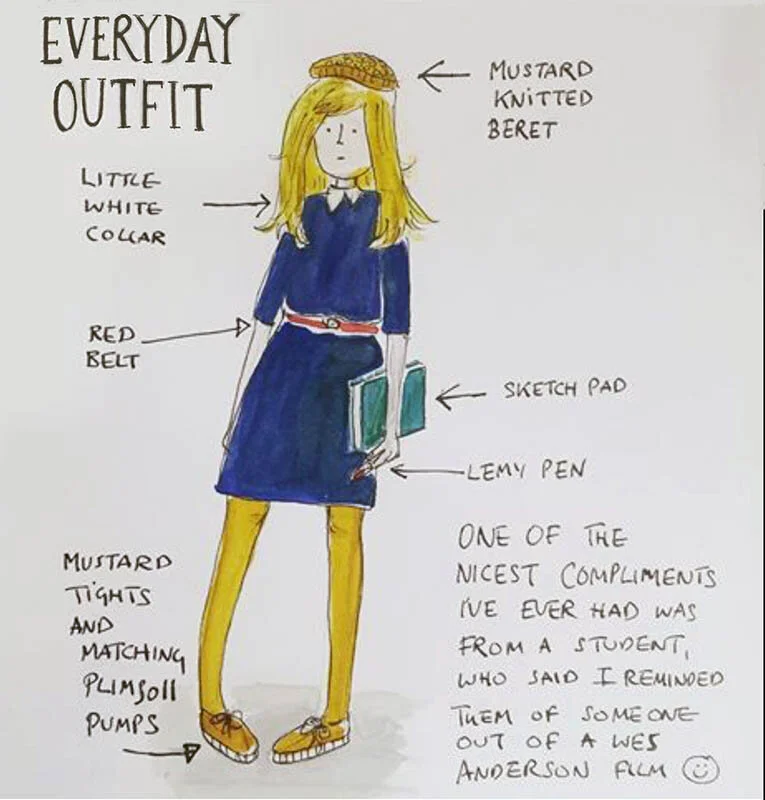 EVERYDAY
OUTFIT
MUSTARD
KNITTED
BERET
LITTLE
WHITE
COLLAR
RED
BELT
SKETCH PAD
LEMY PEN
MUSTARD
TIGHTS
AND
MATCHING
PLIMSOLL
PUMPS
ONE OF THE
NICEST COMPLIMENTS
I'VE EVER HAD WAS
FROM A STUDENT,
WHO SAID I REMINDED
THEM OF SOMEONE
OUT OF A WES
ANDERSON FILM